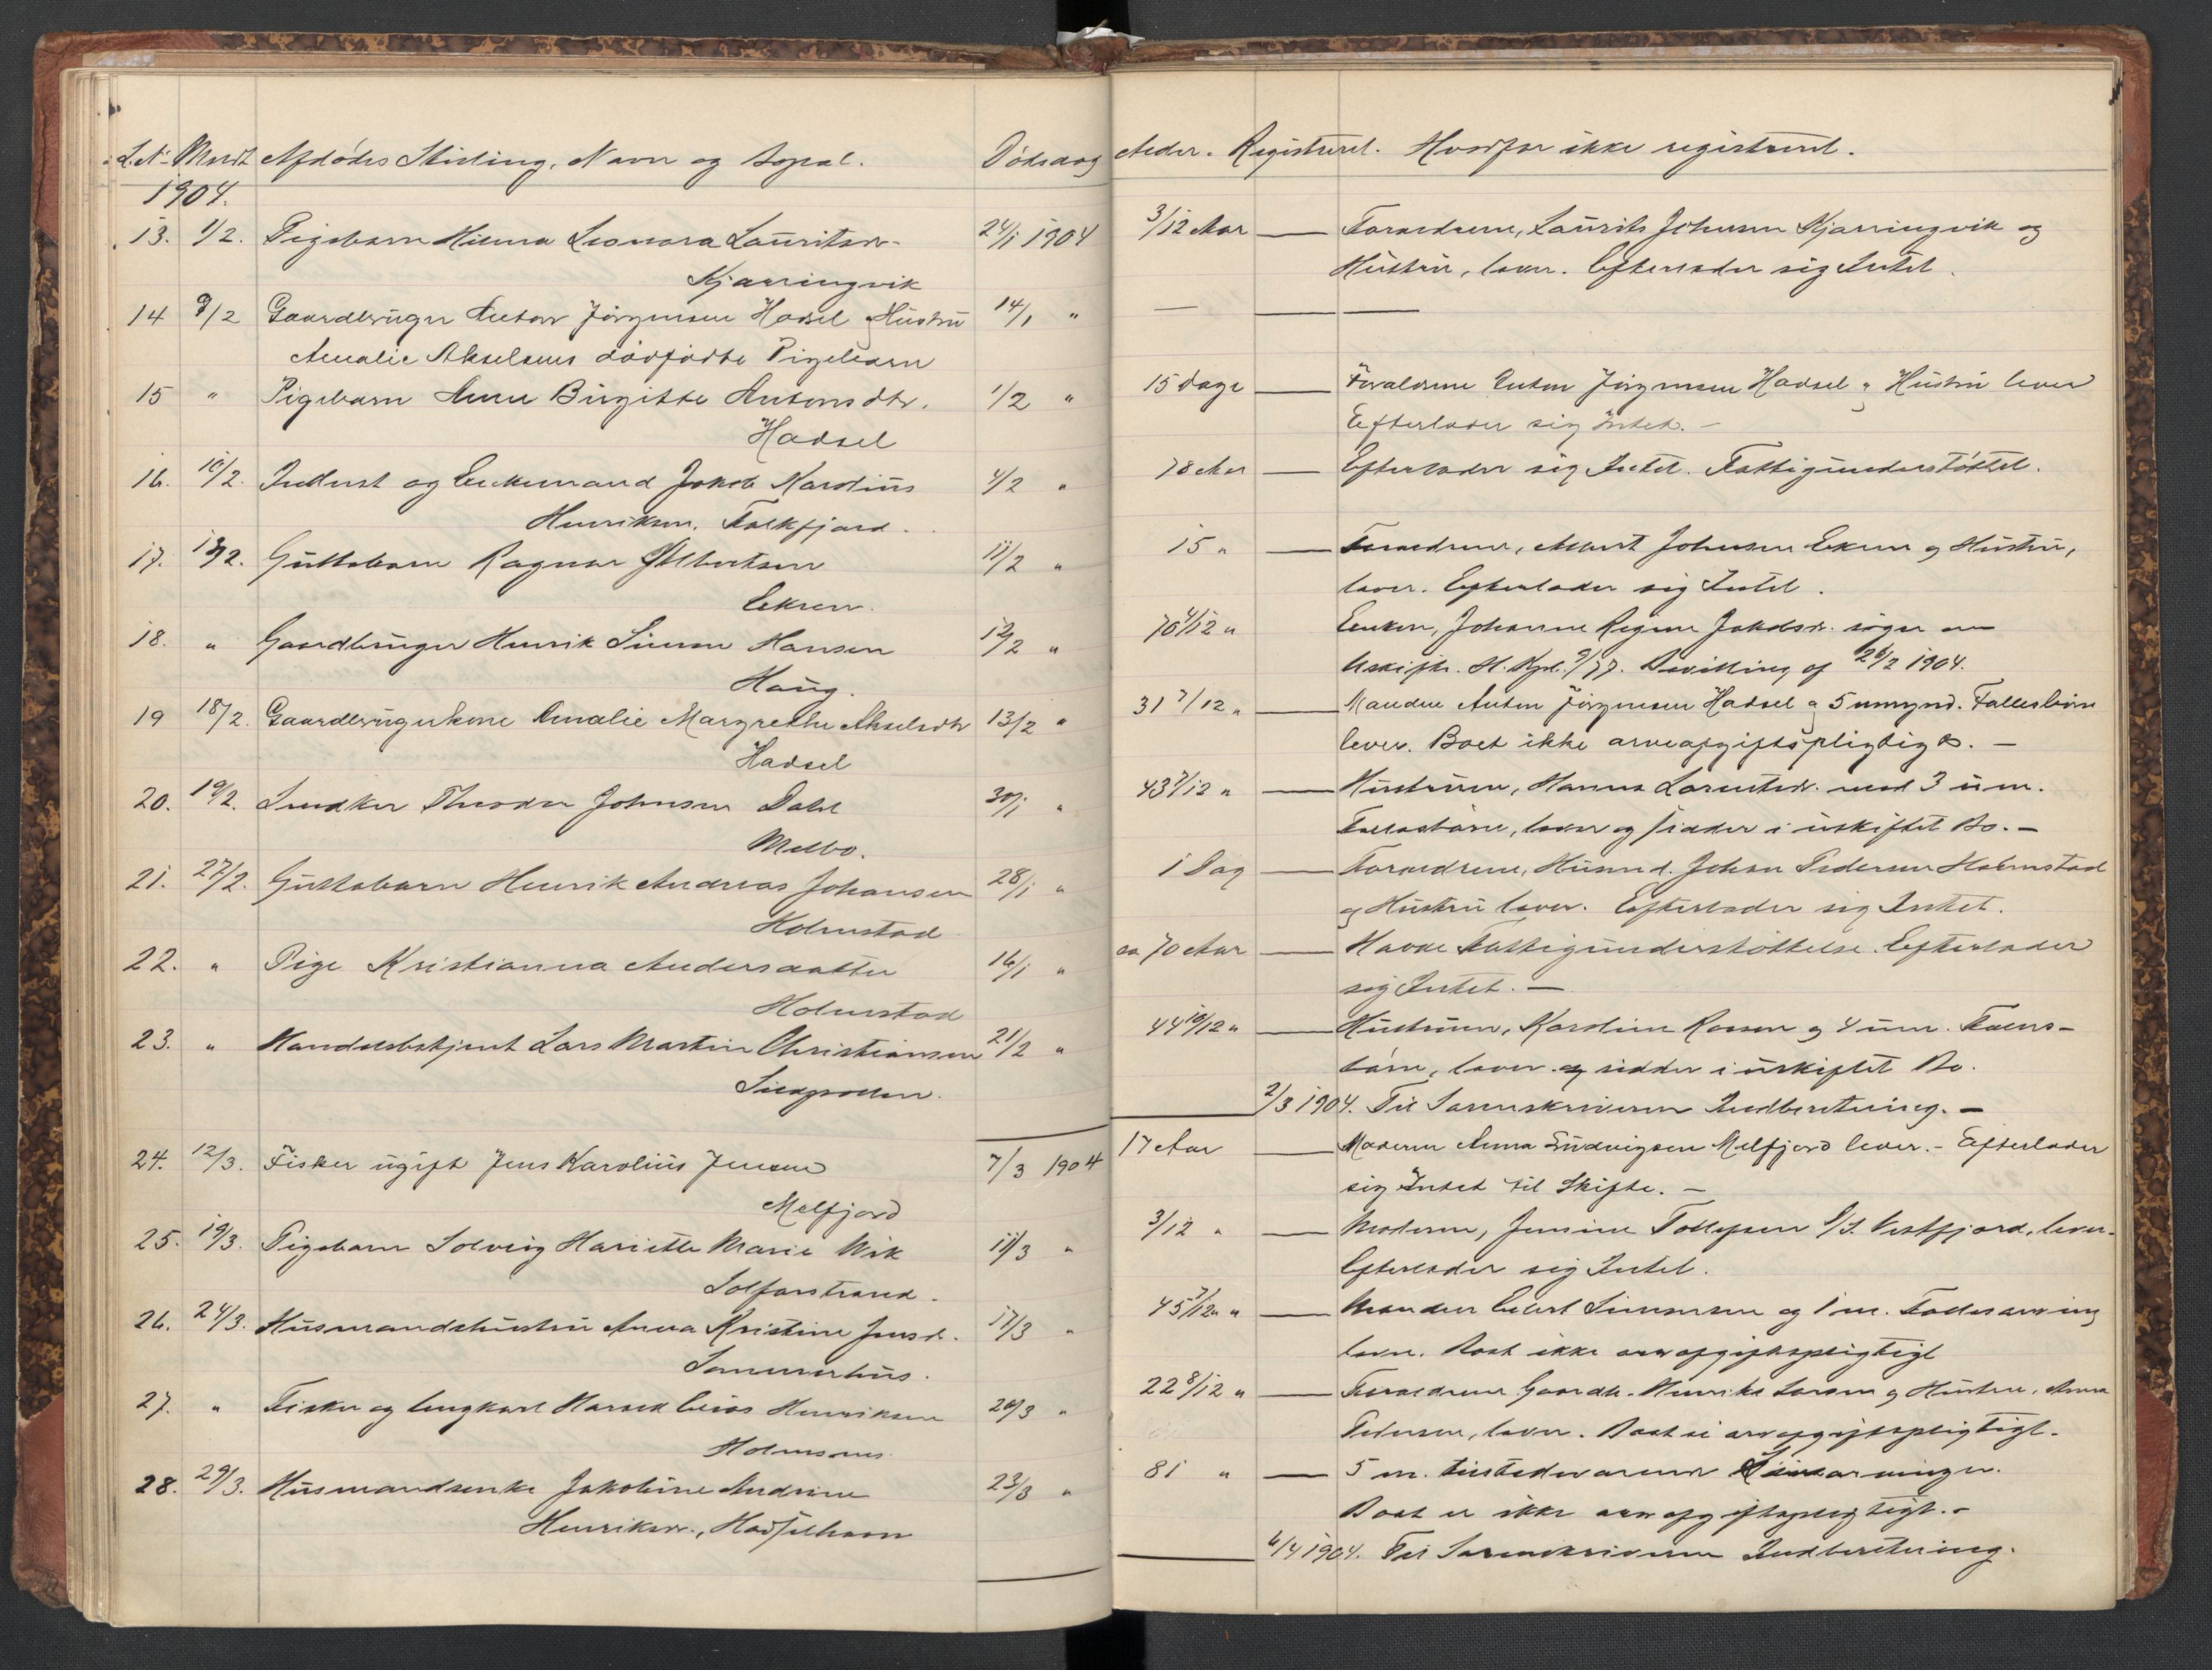 L.N. Meldt Afdødes Stilling, Navn og Bopæl. Dødsdag
1904.
13. 1/2. Pigebarn Hilma Leonora Lauritsdr. 24/1 1904
Kjærringvik
14 9/2 Gaardbruger Anton Jörgensen Hadsel og Hustru 14/1 "
Amalie Akselsens dödfödte Pigebarn
15 " Pigebarn Anna Birgitte Antonsdtr. 1/2 "
Hadsel
16. 10/2. Inderst og Enkemand Jakob Karolius 4/2 "
Henriksen. Falkfjord.
17. 13/2. Guttebarn Ragnar Albertsen 11/2 "
Ekren.
18. " Gaardbruger Henrik Simon Hansen 12/2 "
Haug.
19 18/2. Gaardbrugerkone Amalie Margrethe Akselsdtr 13/2 "
Hadsel
20. 19/2. Snedker Theodor Johnsen Dahl 30/1 "
Melbo.
21. 27/2. Guttebarn Henrik Andreas Johansen 28/1 "
Holmstad
22. " Pige Kristianna Andersdatter 16/1 "
Holmstad
23. " Handelsbetjent Lars Martin Christiansen 21/2 "
24. 12/3. Fisker ugift Jens Karolius Jensen 7/3 1904
Melfjord
25. 19/3. Pigebarn Solveig Hariette Marie Wik 11/3 "
Solfarstrand.
26. 24/3. Husmandshustru Anna Kristine Jensd. 17/3 "
Sommerhus.
27. " Fisker og Ungkarl Harald Henriksen 20/3 "
Holmsnes.
28. 29/3. Husmandsenke Jakobine Andrine 23/3 "
Henriksdr., Hadselhavn
Alder. Registreret. Hvorfor ikke registreret.
3/12 Aar — Forældrene, Laurits Johnsen Kjærringvik og
Hustru, lever. Efterlader sig Intet.
— — —
15 Dage — Forældrene Anton Jörgensen Hadsel og Hustru lever
Efterlader sig Intet. —
78 Aar — Efterlader sig Intet. Fattigunderstöttet.
15 " — Forældrene, Albert Johnsen Ekren og Hustru,
lever. Efterlader sig Intet.
70 4/12 " Enken, Johanne Regine Jakobsdr. söger om
Uskifte. Bevilling af 26/2 1904.
31 7/12 " — Manden Anton Jörgensen Hadsel og 5 umynd. Fællesbörn
lever. Boet ikke arveafgiftspligtigt. —
43 7/12 " — Hustruen, Hanna Lorentsdr. med 3 um.
Fællesbörn, lever og sidder i uskiftet Bo. —
1 Dag — Forældrene, Husmd. Johan Pedersen Holmstad
og Hustru lever. Efterlader sig Intet.
ca 70 Aar — Havde Fattigunderstöttelse. Efterlader
sig Intet. —
44 10/12 " — Hustruen, Karoline Rossen og 4 um. Fælles-
börn, lever og sidder i uskiftet Bo.
2/3 1904. Til Sorenskriveren Indberetning. —
17 Aar — Moderen Anna Ludvigsen Melfjord lever. — Efterlader
sig Intet til Skifte. —
3/12 " — Moderen, Jensine Tollefsen Vestfjord, lever.
Efterlader sig Intet.
45 7/12 " — Manden Edert Simonsen og 1 m. Fællesarving
lever. Boet ikke arveafgiftspligtigt
22 8/12 " — Forældrene Gaardb. Henrik Larsen og Hustru, Anna
Pedersen, lever. Boet ei arveafgiftspligtigt.
81 " — 5 m. tilstedeværende Livsarvinger.
Boet er ikke arveafgiftspligtigt. —
6/4 1904. Til Sorenskriveren Indberetning.